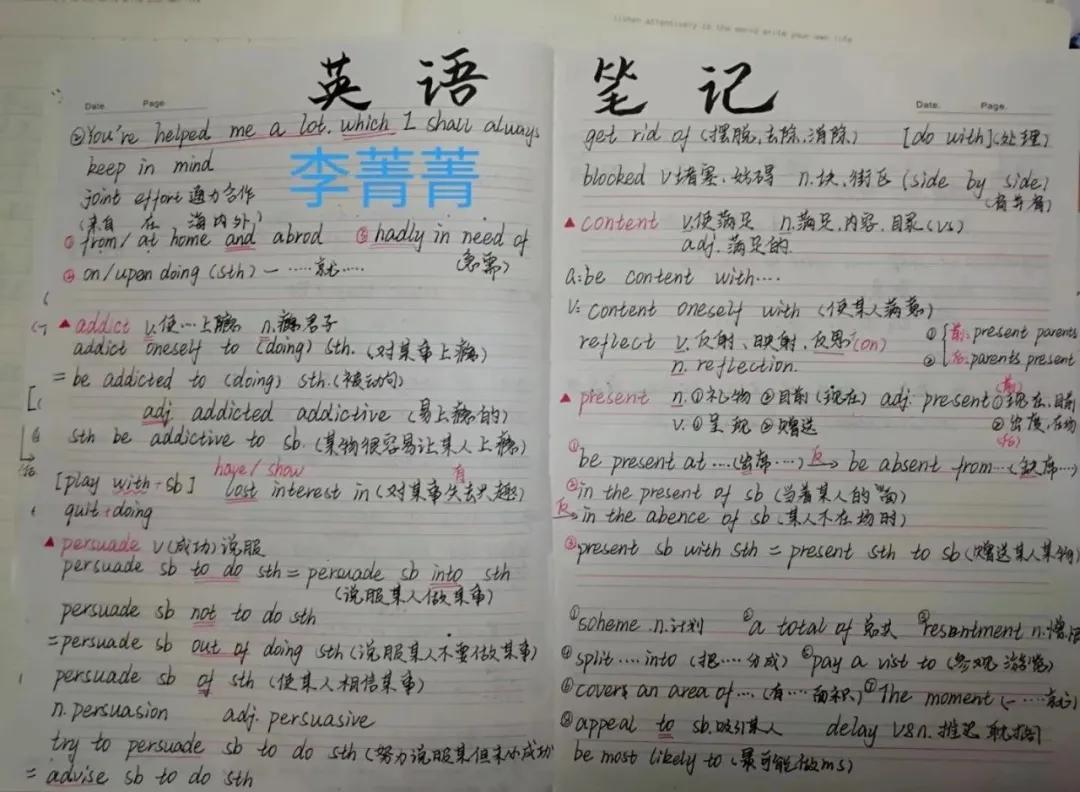 listen attentively to the world write your own life
英语 笔记
李菁菁
Date. Page
②You're helped me a lot, which I shall always
keep in mind
joint effort 通力合作
(来自 在 海内外)
① from/at home and abrod ③ hadly in need of
(急需)
② on/upon doing (sth) 一……就……
▲ addict v.使…上瘾 n.瘾君子
addict oneself to (doing) sth. (对某事上瘾)
= be addicted to (doing) sth. (被动句)
adj addicted addictive (易上瘾的)
sth be addictive to sb. (某物很容易让某人上瘾)
have/show 有
[play with+sb] lost interest in (对某事失去兴趣)
quit+doing
▲ persuade v (成功)说服
persuade sb to do sth = persuade sb into sth
(说服某人做某事)
persuade sb not to do sth
=persuade sb out of doing sth (说服某人不要做某事)
persuade sb of sth (使某人相信某事)
n. persuasion adj. persuasive
try to persuade sb to do sth (努力说服某但未必成功
= advise sb to do sth
Date. Page.
get rid of (摆脱,去除,消除) [do with](处理)
blocked v堵塞、妨碍 n.块,街区 (side by side)
(肩并肩)
▲ content v.使满足 n.满足,内容,目录(vs)
adj.满足的.
a:be content with....
v: content oneself with (使某人满意)
reflect v.反射、映射,反思(on) ①前:present parents
n. reflection. ②后:parents present
(前)
▲ present n.①礼物 ②目前(现在) adj. present①现在,目前
v.①呈现 ②赠送 ②出席,在场
(后)
①be present at …(出席…) 反→ be absent from…(缺席…)
②in the present of sb (当着某人的面)
反→in the abence of sb (某人不在场时)
③present sb with sth = present sth to sb (赠送某人某物)
①soheme .n.计划 ②a total of 总共 ③resentment n.憎恨
④split ····into (把…分成) ⑤pay a vist to (参观 游览)
⑥covers an area of… (有…面积) ⑦The moment (一…就)
⑧appeal to sb.吸引某人 delay v&n.推迟 耽搁
be most likely to (最可能做ms)